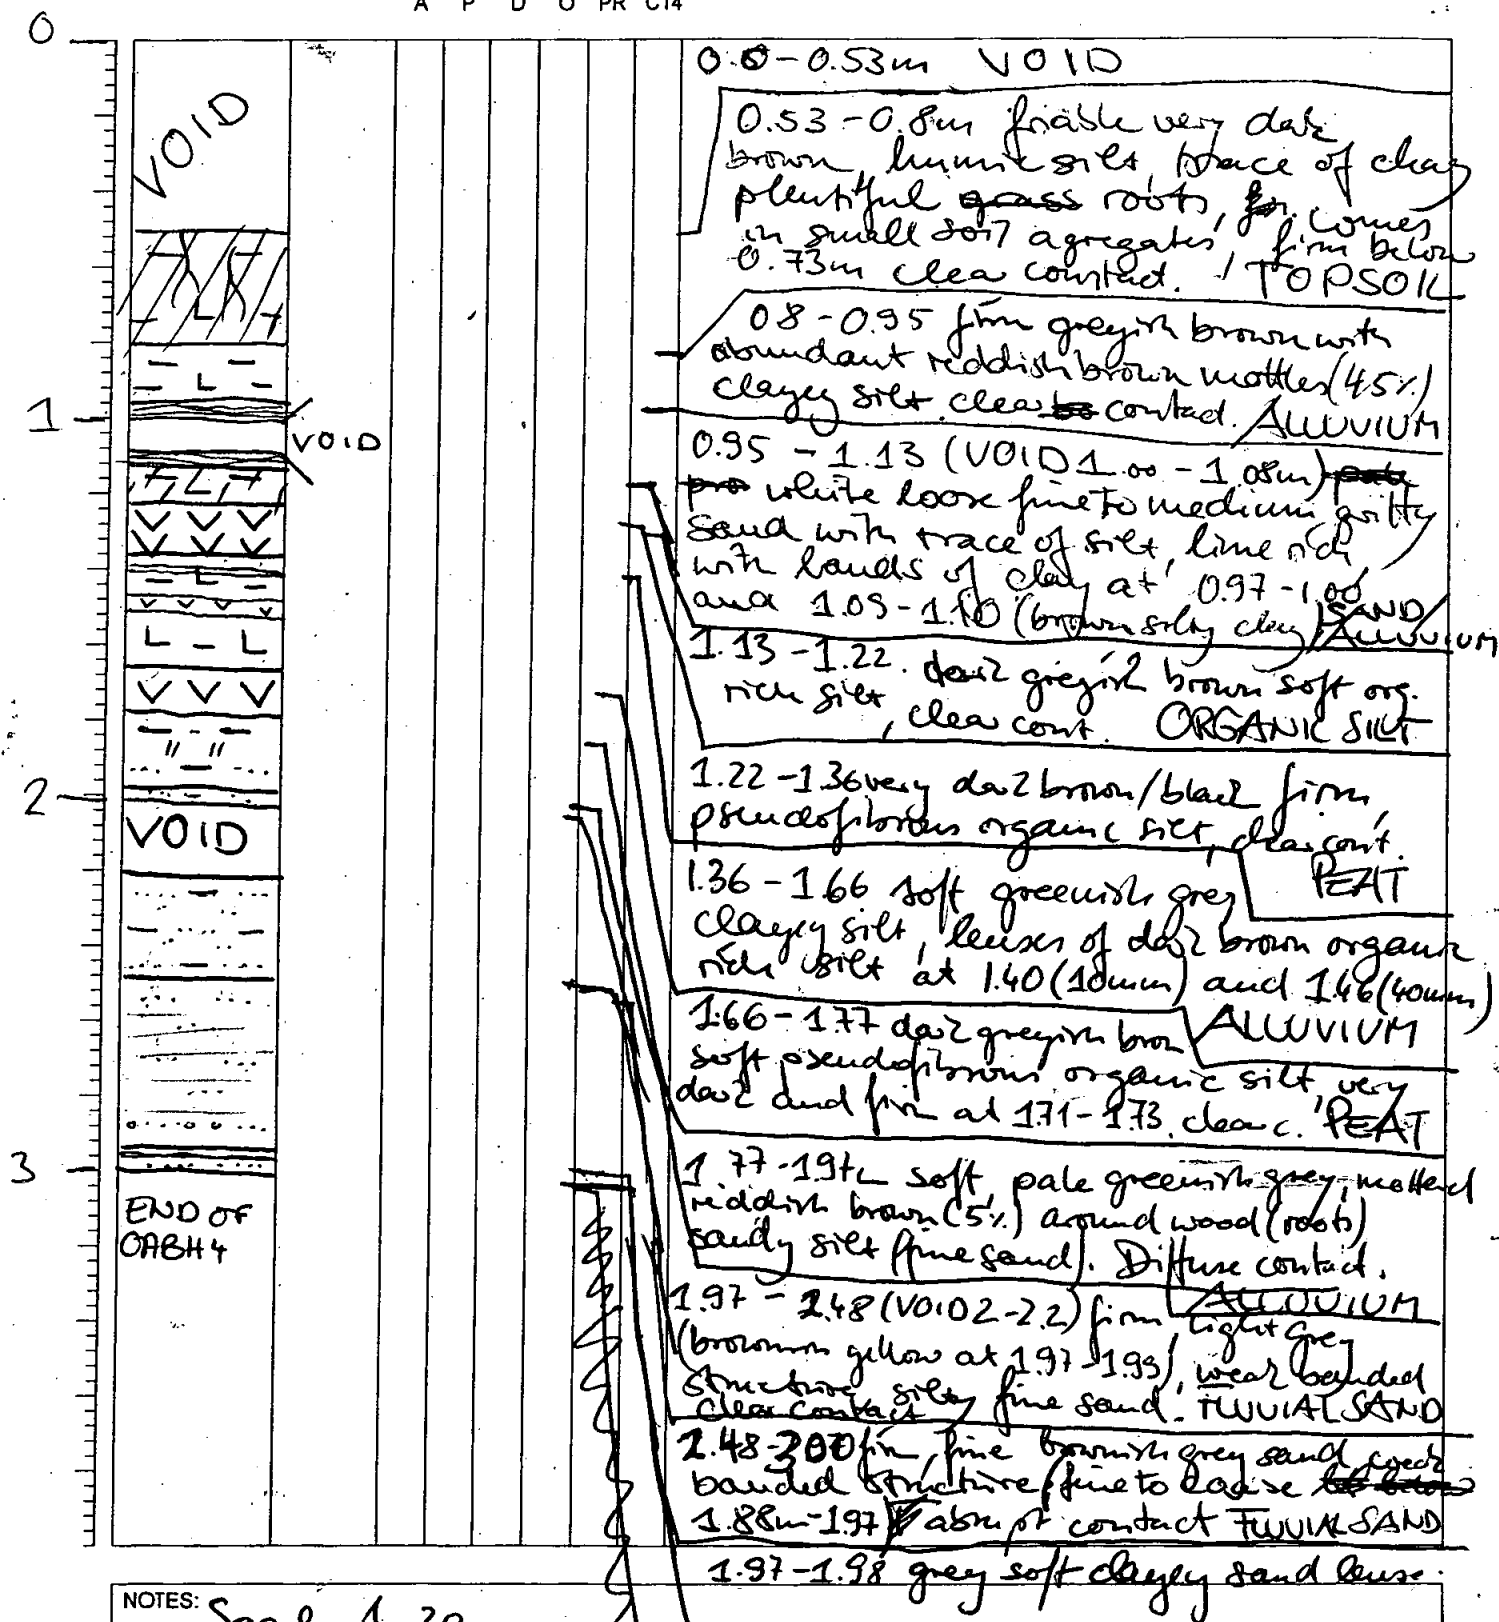 A P D O PR C14
0
VOID
1
VOID
2
VOID
3
END OF
OABH4
0.0-0.53m VOID
0.53-0.8m friable very dark
brown, humic silt, trace of clay
plentiful grass roots, comes
in small soil agregates, firm below
0.73m clear contact. TOPSOIL
0.8-0.95 firm greyish brown with
abundant reddish brown mottles (45%)
clayey silt. clear contact. ALLUVIUM
0.95 - 1.13 (VOID 1.00 - 1.08m)
white loose fine to medium gritty
sand with trace of silt, lime rich,
with bands of clay at 0.97-1.00
and 1.09-1.10 (brown silty clay) SAND/
ALLUVIUM
1.13-1.22. dark greyish brown soft org.
rich silt, clear cont. ORGANIC SILT
1.22-1.36 very dark brown/black firm,
pseudofibrous organic silt, clear cont.
PEAT
1.36-1.66 soft greenish grey
clayey silt, lenses of dark brown organic
rich silt at 1.40 (10mm) and 1.46 (40mm)
ALLUVIUM
1.66-1.77 dark greyish bron
soft pseudofibrous organic silt, very
dark and firm at 1.71-1.73. clear c. PEAT
1.77-1.97 soft, pale greenish grey, mottled
reddish brown (5%) around wood (roots)
sandy silt (fine sand). Diffuse contact.
ALLUVIUM
1.97 - 2.48 (VOID 2-2.2) firm, light grey
(brownish yellow at 1.97-1.99), weak banded
structure, silty fine sand. FLUVIAL SAND
clear contact
2.48-3.00 firm, fine brownish grey sand, weak
banded structure, fine to coarse
1.88m-1.97 abrupt contact FLUVIAL SAND
1.97-1.98 grey soft clayey sand lense.
NOTES: